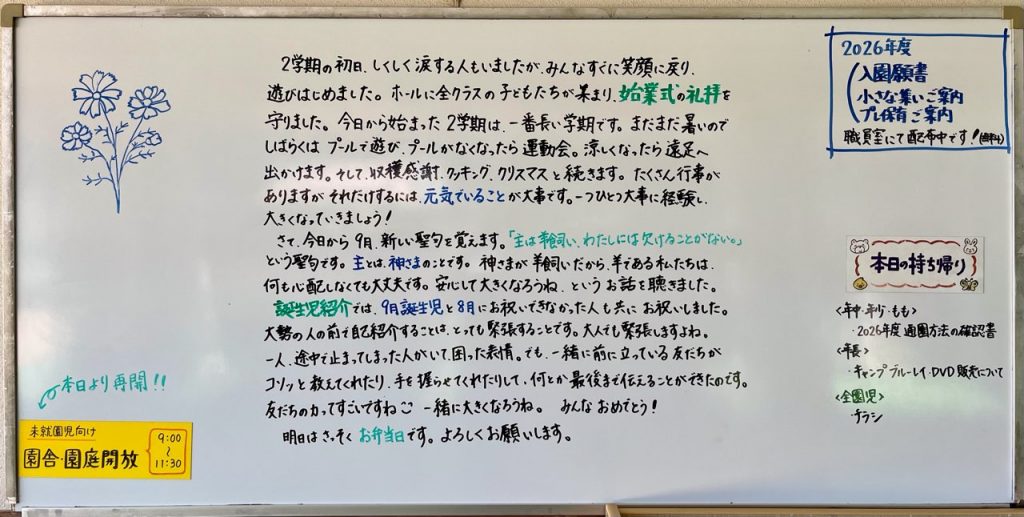 2学期の初日、しくしく涙する人もいましたが、みんなすぐに笑顔に戻り、
遊びはじめました。ホールに全クラスの子どもたちが集まり、始業式の礼拝を
守りました。今日から始まった2学期は、一番長い学期です。まだまだ暑いので
しばらくは プールで遊び、プールがなくなったら 運動会。涼しくなったら 遠足へ
出かけます。そして、収穫感謝、クッキング、クリスマスと続きます。たくさん行事が
ありますが それだけするには、元気でいることが大事です。一つひとつ大事に経験し、
大きくなっていきましょう!
さて、今日から 9月、新しい聖句を覚えます。「主は羊飼い、わたしには欠けることがない。」
という聖句です。主とは、神さまのことです。神さまが羊飼いだから、羊である私たちは、
何も心配しなくても大丈夫です。安心して大きくなろうね、というお話を聴きました。
誕生児紹介では、9月誕生児と8月にお祝いできなかった人も共に お祝いしました。
大勢の人の前で自己紹介することは、とっても緊張することです。大人でも緊張しますよね。
一人、途中で止まってしまった人がいて、困った表情。でも、一緒に前に立っている友だちが
コソッと教えてくれたり、手を握らせてくれたりして、何とか最後まで伝えることができたのです。
友だちの力ってすごいですね 一緒に大きくなろうね。 みんなおめでとう!
明日はさっそく お弁当日です。よろしくお願いします。
2026年度
入園願書
小さな集いご案内
プレ保育ご案内
職員室にて配布中です!(無料)
本日の持ち帰り
<年中・年少・もも>
・2026年度 通園方法の確認書
<年長>
・キャンプ ブルーレイ・DVD 販売について
<全園児>
・チラシ
本日より再開!!
未就園児向け
園舎・園庭開放
9:00
~
11:30